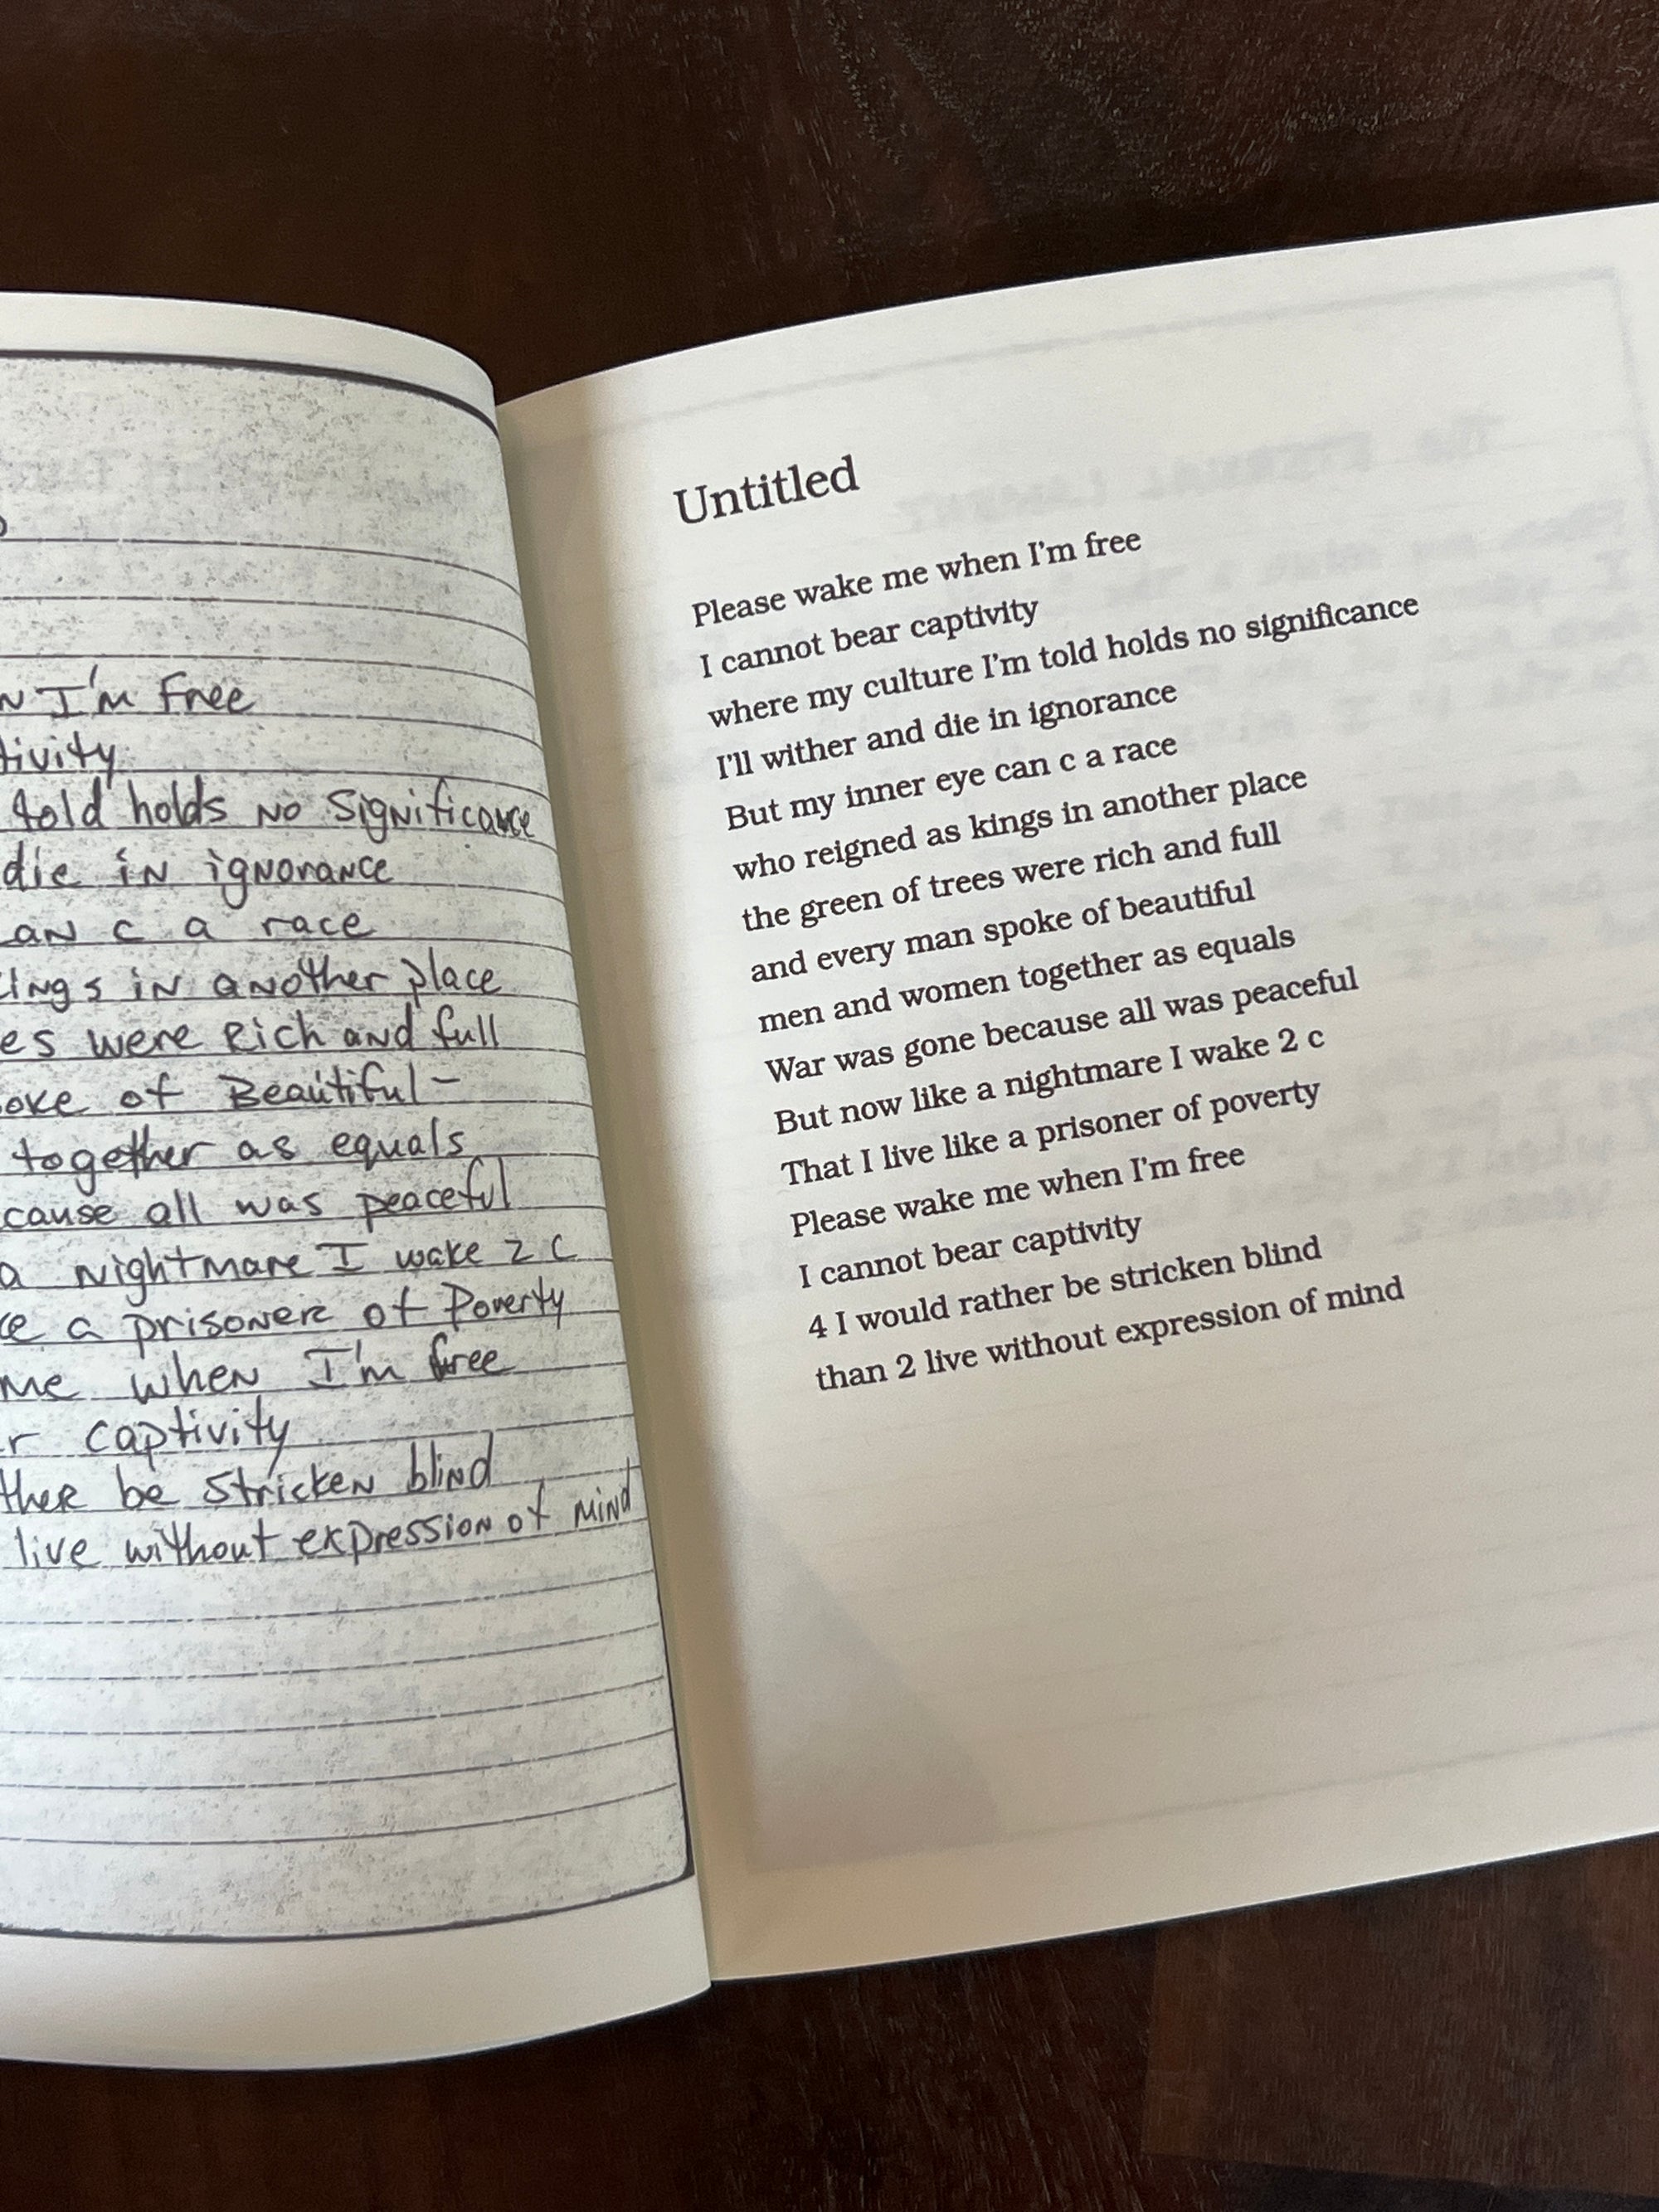 N I'm free
tivity
told holds no significance
die in ignorance
an c a race
ings in another place
es were Rich and full
oke of Beautiful-
together as equals
cause all was peaceful
a nightmare I wake 2 c
e a prisoner of Poverty
me when I'm free
r captivity
ther be stricken blind
live without expression of mind
Untitled
Please wake me when I'm free
I cannot bear captivity
where my culture I'm told holds no significance
I'll wither and die in ignorance
But my inner eye can c a race
who reigned as kings in another place
the green of trees were rich and full
and every man spoke of beautiful
men and women together as equals
War was gone because all was peaceful
But now like a nightmare I wake 2 c
That I live like a prisoner of poverty
Please wake me when I'm free
I cannot bear captivity
4 I would rather be stricken blind
than 2 live without expression of mind